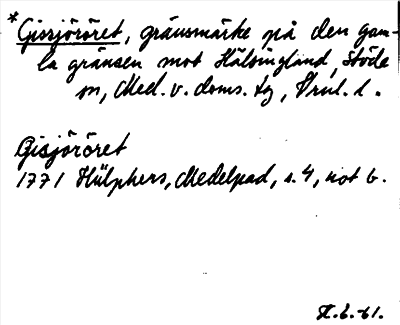 *Gissjöröret, gränsmärke på den gam-
la gränsen mot Hälsingland, Stöde
sn, Med. v. doms. tg, Vrul. l.
Gisjöröret
1771 Hülphers, Medelpad, s. 4, not b.
-61.